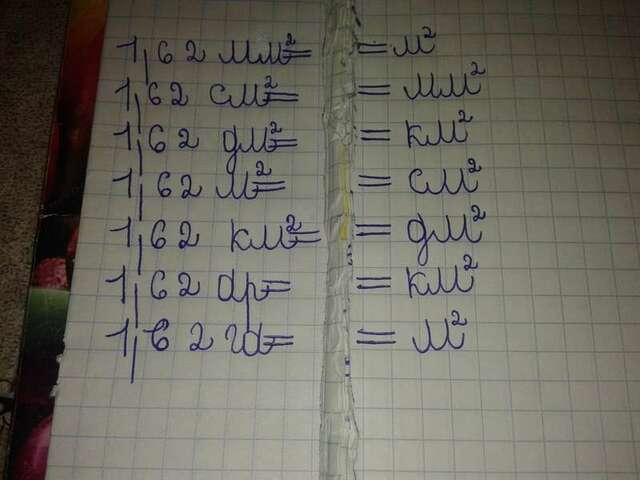 1,62 мм²= =м²
1,62 см²= =мм²
1,62 дм²= =км²
1,62 м²= =см²
1,62 км²= =дм²
1,62 ар= =км²
1,62 га= =м²